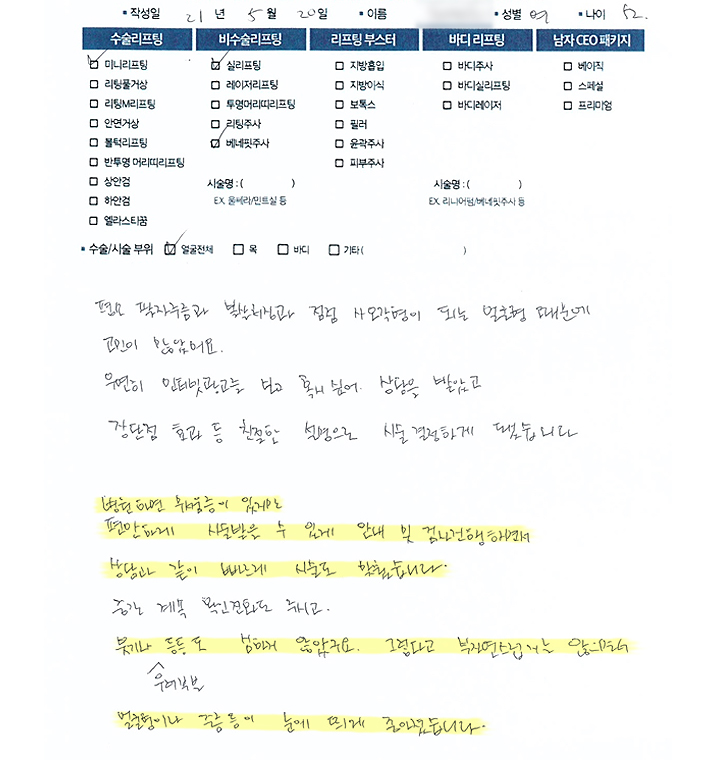 • 작성일 21 년 5 월 20 일 • 이름 • 성별 여 • 나이 52.
수술리프팅 비수술리프팅 리프팅 부스터 바디 리프팅 남자 CEO 패키지
미니리프팅 실리프팅 지방흡입 바디주사 베이직
리팅풀거상 레이저리프팅 지방이식 바디실리프팅 스페셜
리팅M리프팅 투명머리띠리프팅 보톡스 바디레이저 프리미엄
안면거상 리팅주사 필러
볼턱리프팅 베네핏주사 윤곽주사
반투명 머리띠리프팅 피부주사
상안검 시술명 : ( ) 시술명 : ( )
하안검 EX. 울쎄라/민트실 등 EX. 리니어펌/베네핏주사 등
엘라스티꿈
• 수술/시술 부위 얼굴전체 목 바디 기타 ( )
평소 팔자주름과 볼살처짐과 점점 사모각형이 되는 얼굴형 때문에
고민이 많았어요.
우연히 인터넷광고를 보고 혹시 싶어. 상담을 받았고
장단점 효과 등 친절한 설명으로 시술결정하게 됐습니다
병원하면 무서움증이 있게마
편안하게 시술받을 수 있게 안내 및 검사진행해면서
상담과 같이 빠르게 시술도 마쳤습니다.
중간 계속 확인전화도 주시고.
붓기나 통증도 심하지 않았구요. 그렇다고 부자연스럽거는 않으면서
얼굴형이나 주름등이 눈에 띄게 좋아졌습니다.